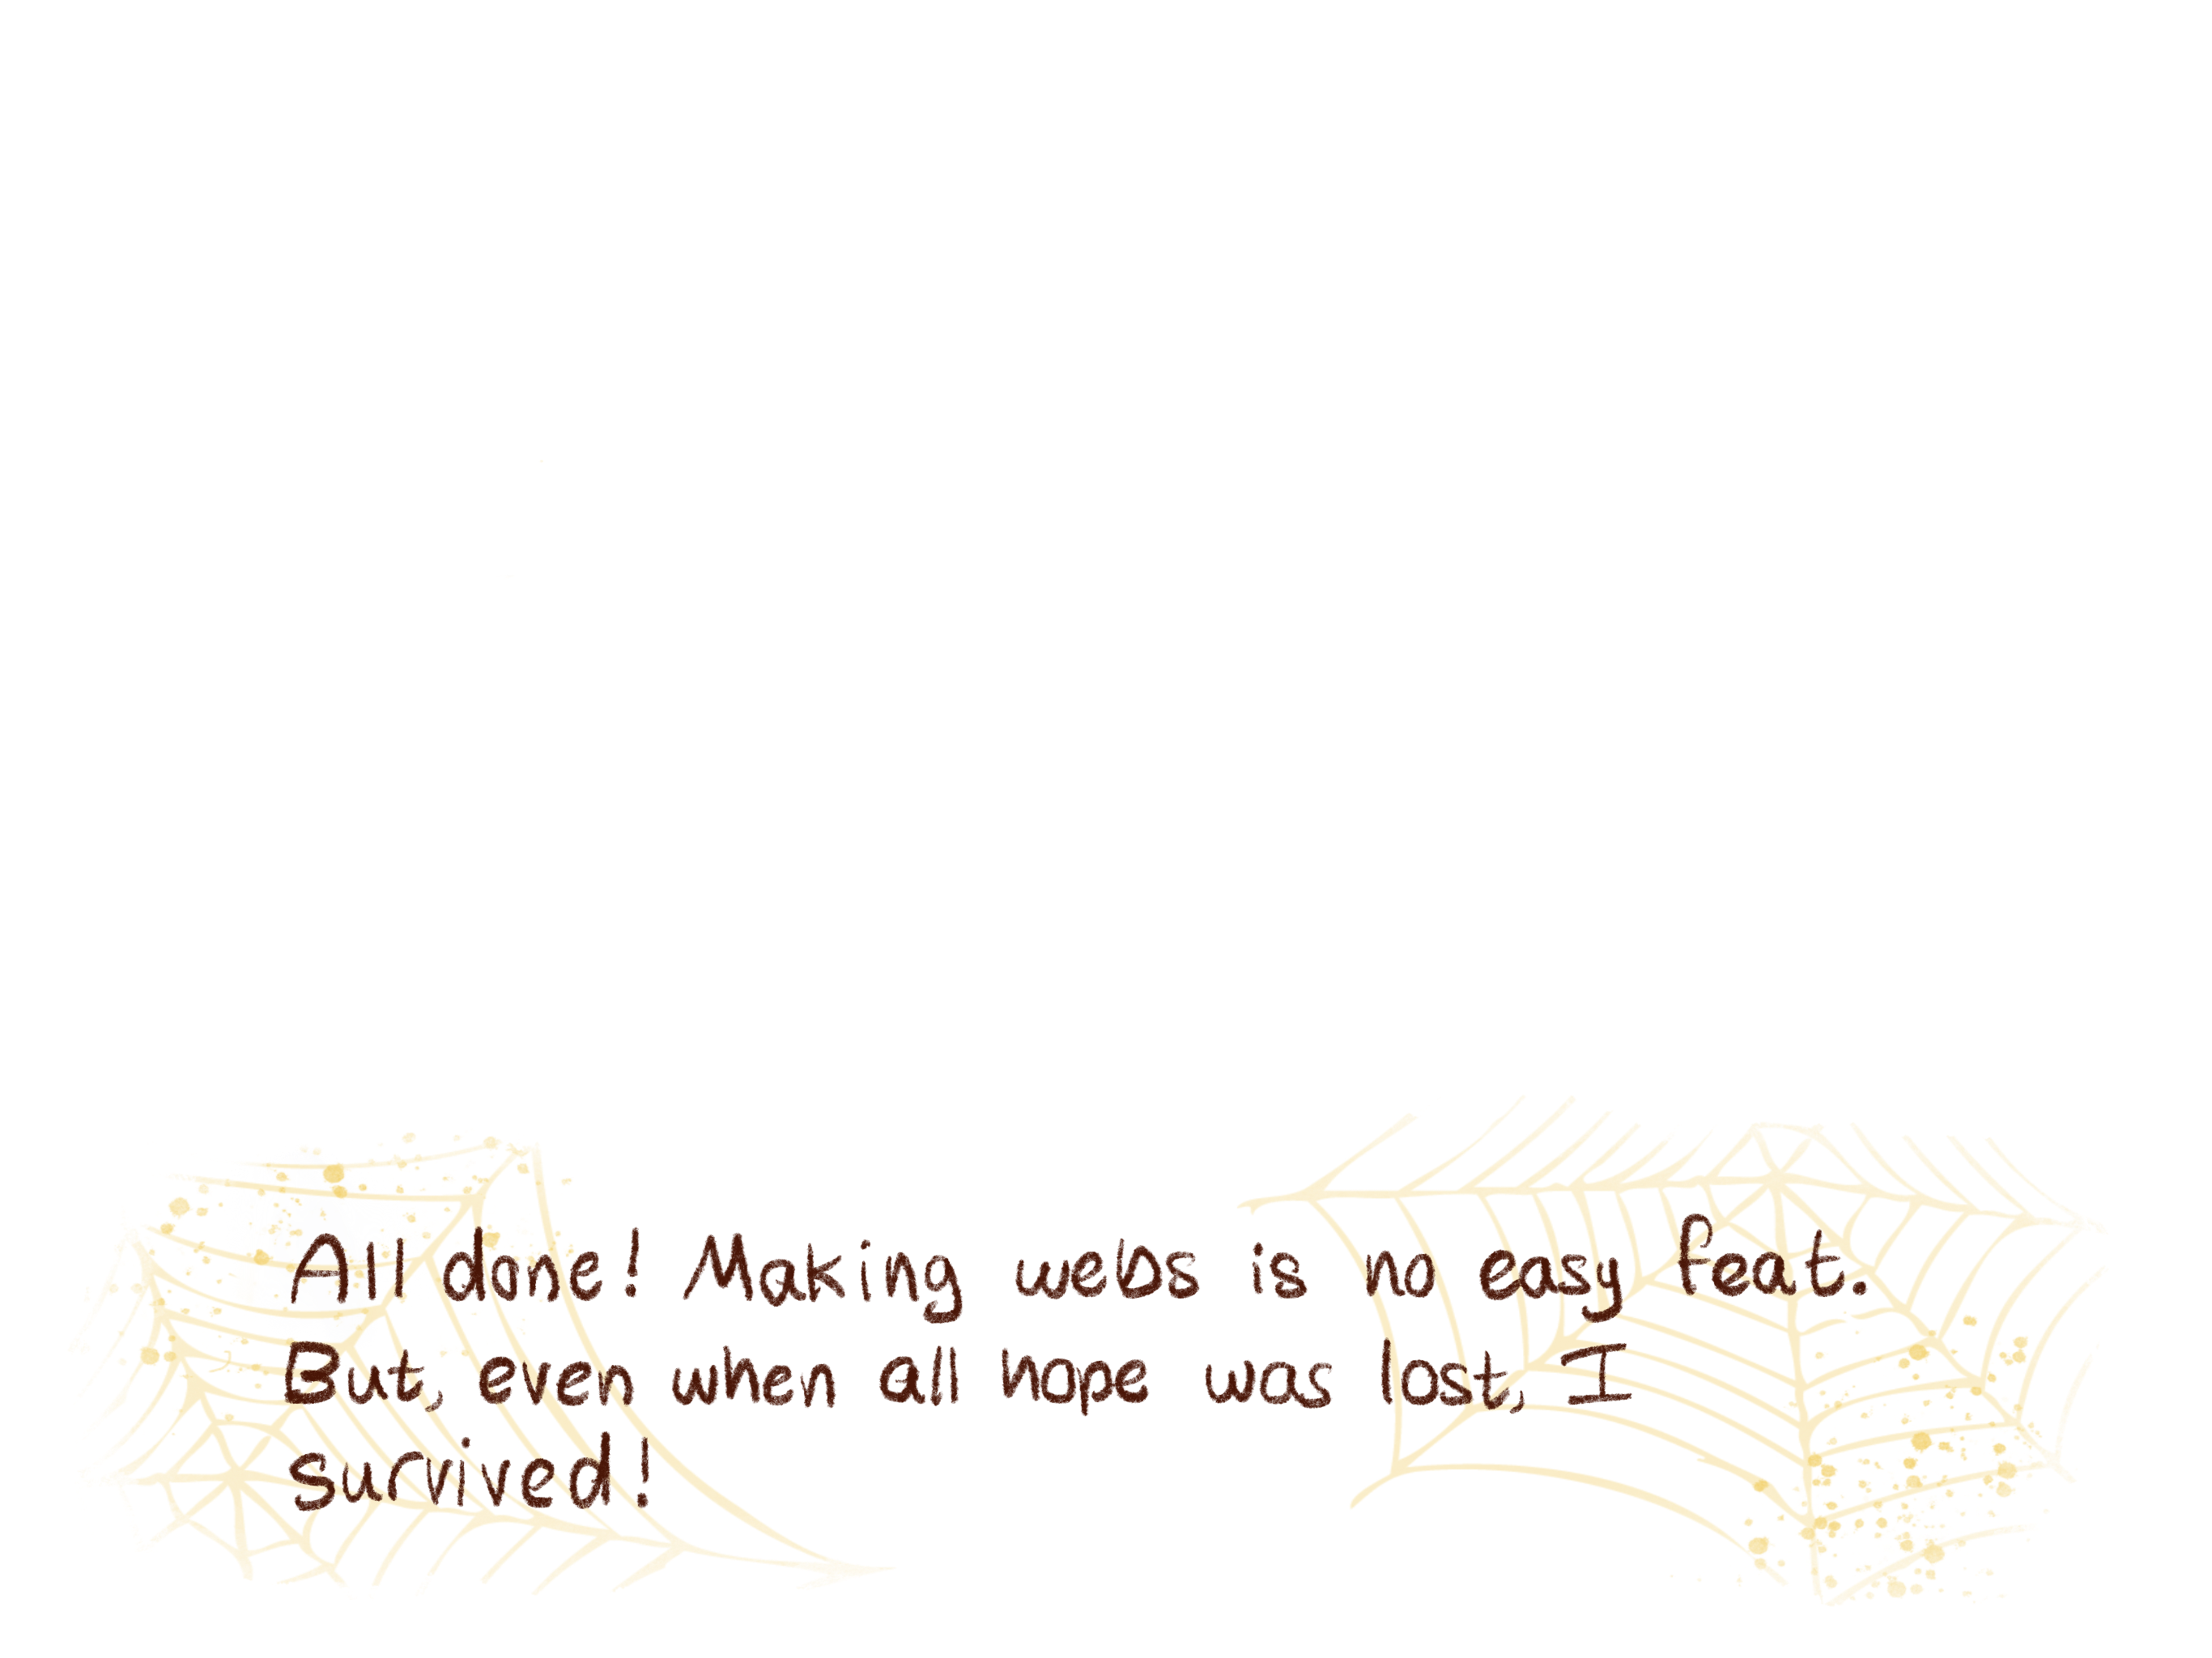 All done! Making webs is no easy feat.
But, even when all hope was lost, I
survived!